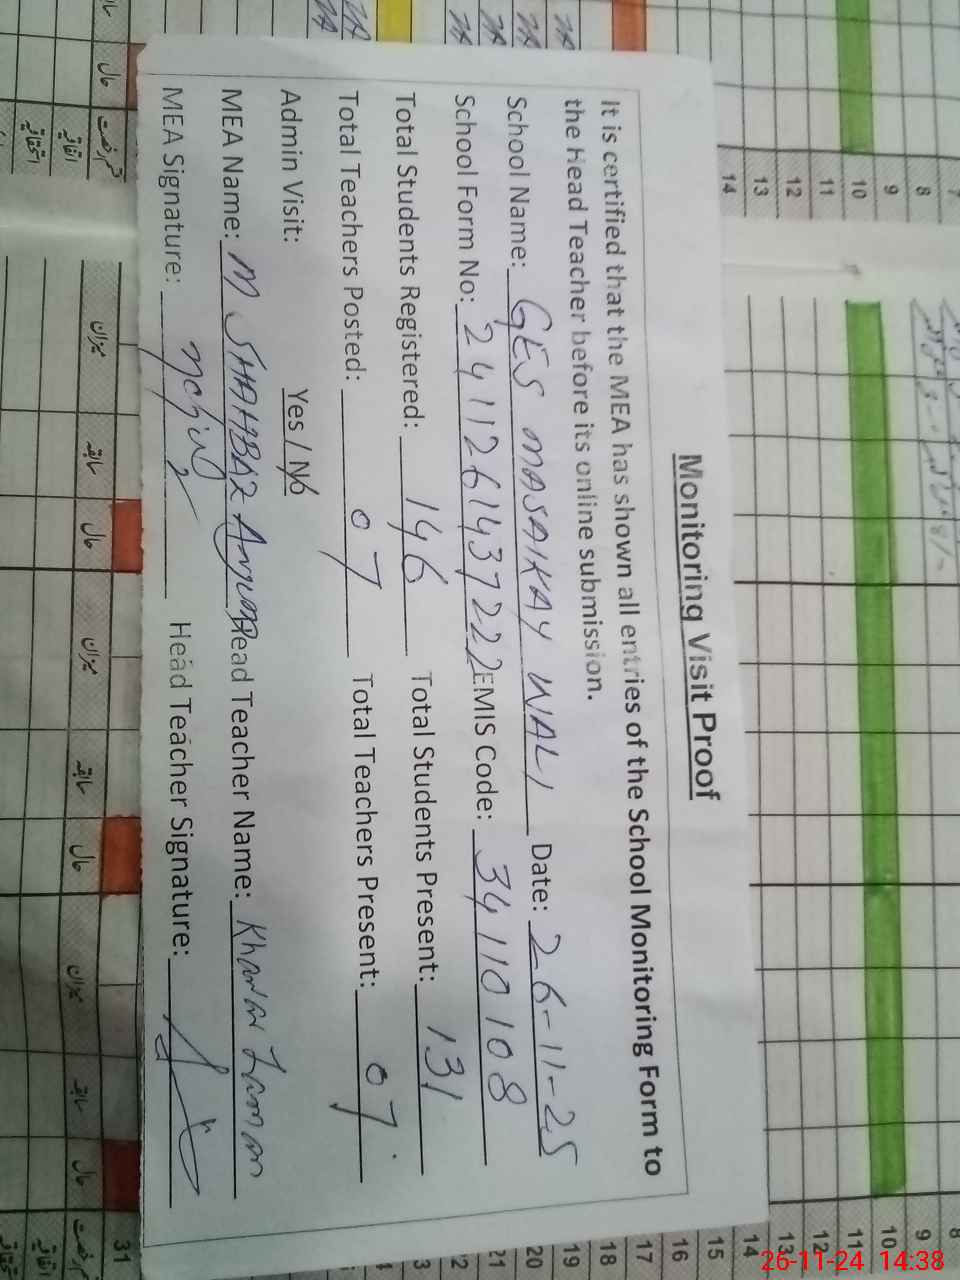 Monitoring Visit Proof
It is certified that the MEA has shown all entries of the School Monitoring Form to
the Head Teacher before its online submission.
School Name: GES MASAKAY WALI Date: 26-11-25
School Form No: 241126143722 2 EMIS Code: 34110108
Total Students Registered: 146 Total Students Present: 131
Total Teachers Posted: 07 Total Teachers Present: 07
Admin Visit: Yes / No
MEA Name: M SHAHBAZ Anjum Head Teacher Name: Khawar Zaman
MEA Signature: Head Teacher Signature:
7
8
9
10
11
12
13
14
8
9
10
11
12
13
14
15
16
17
18
19
20
21
22
3
31
میزان
سابقہ
حال
میزان
سابقہ
حال
میزان
سابقہ
حال
26-11-24 14:38